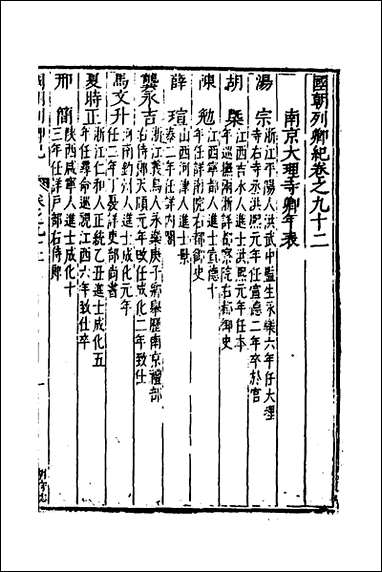 國朝列卿紀卷之九十二
南京大理寺卿年表
湯宗 浙江平陽人洪武中監生永樂六年任大理
寺右寺丞洪熙元年任宣德二年卒於官
胡槩 江西吉水人進士洪熙元年任本
年巡撫南浙詳都察院右都御史
陳勉 江西寧都人進士宣德十
年任詳南院右都御史
薛瑄 山西河津人進士景
泰二年任詳內閣
龔永吉 浙江義烏人永樂庚子鄉舉歷南京禮部
右侍郎天順元年改任成化二年致仕
馬文升 河南鈞州人進士成化元年
任二年丁憂詳吏部尚書
夏時正 浙江仁和人正統乙丑進士成化五
年任尋命巡視江西六年致仕卒
邢簡 陝西咸寧人進士成化十
三年任詳戶部右侍郎